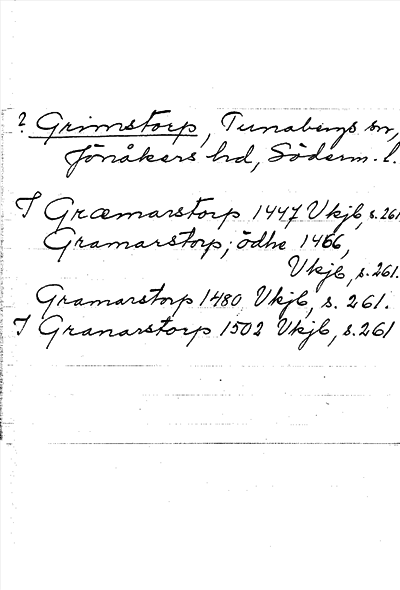 ? Grimstorp, Tunabergs sn,
Jönåkers hd, Söderm. l.
J Græmarstorp 1447 Vkjb, s. 261
Gramarstorp, ödhe 1466,
Vkjb, s. 261.
Gramarstorp 1480 Vkjb, s. 261.
J Granarstorp 1502 Vkjb, s. 261